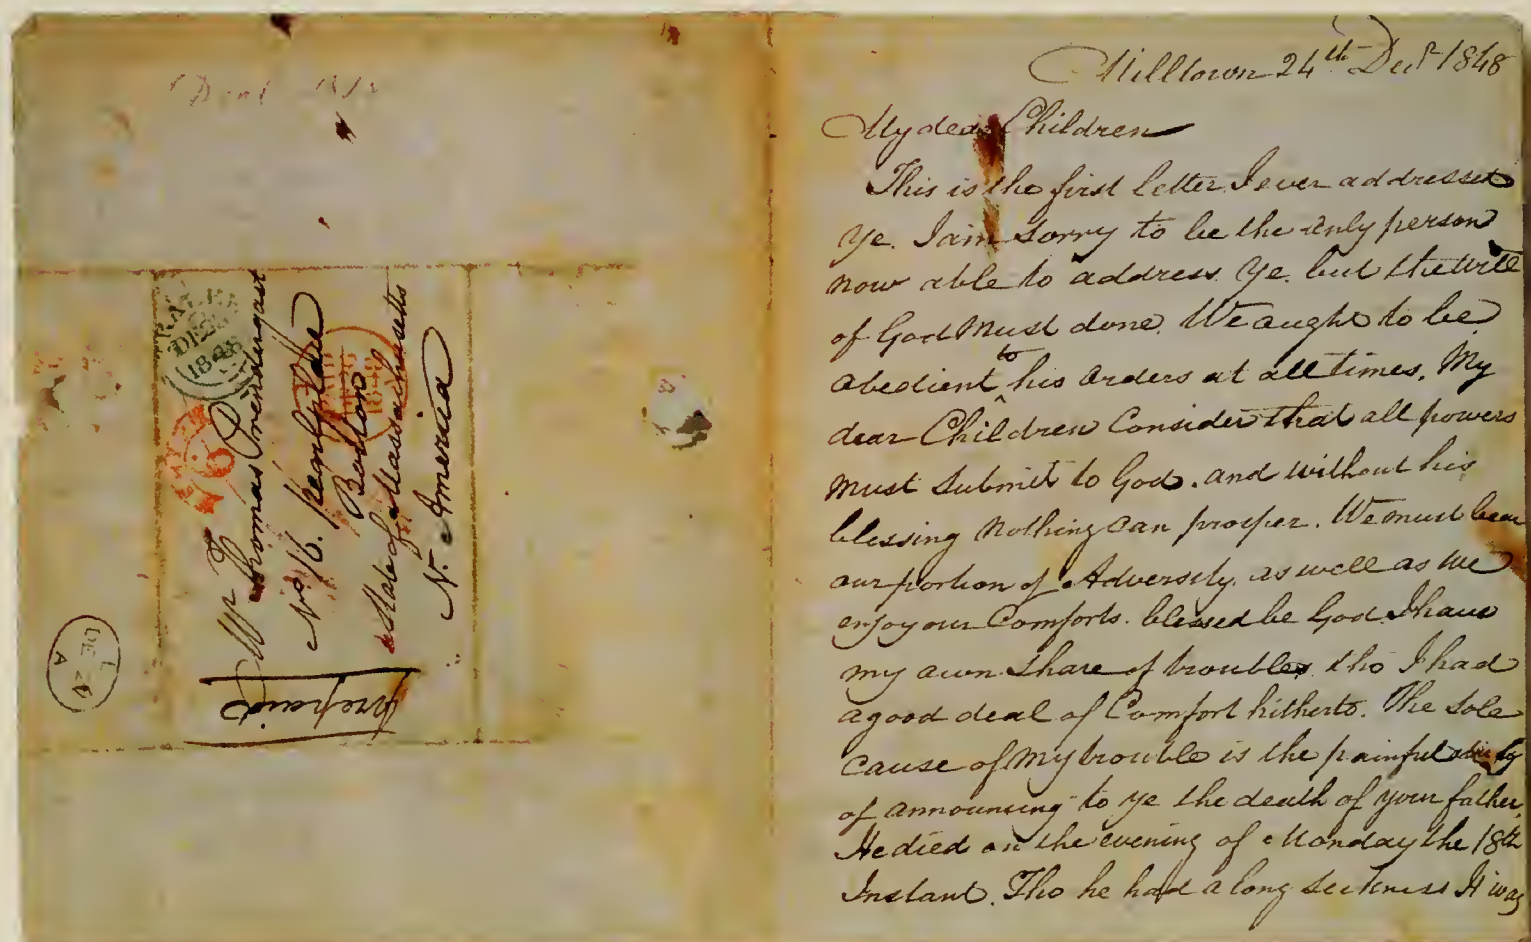 Mr Thomas Prendergast
No. 16. Penly place
Boston
State of Massachusetts
N. America
prepaid
DE
1848
PAID
L
DE 24
A
Milltown 24th Decr 1848
My dear Children
This is the first letter I ever addressed
ye. I am sorry to be the only person
now able to address ye. but the Will
of God Must done. We aught to be
obedient to his orders at all times. My
dear Children Consider that all powers
must submit to God. and without his
blessing nothing can prosper. We must bear
our portion of Adversity. as well as we
enjoy our Comforts. blessed be God I have
my own share of troubles tho I had
a good deal of Comfort hitherto. The sole
cause of my trouble is the painful duty
of announcing to ye the death of your father.
He died on the evening of Monday the 18th
Instant. Tho he had a long sickness It was